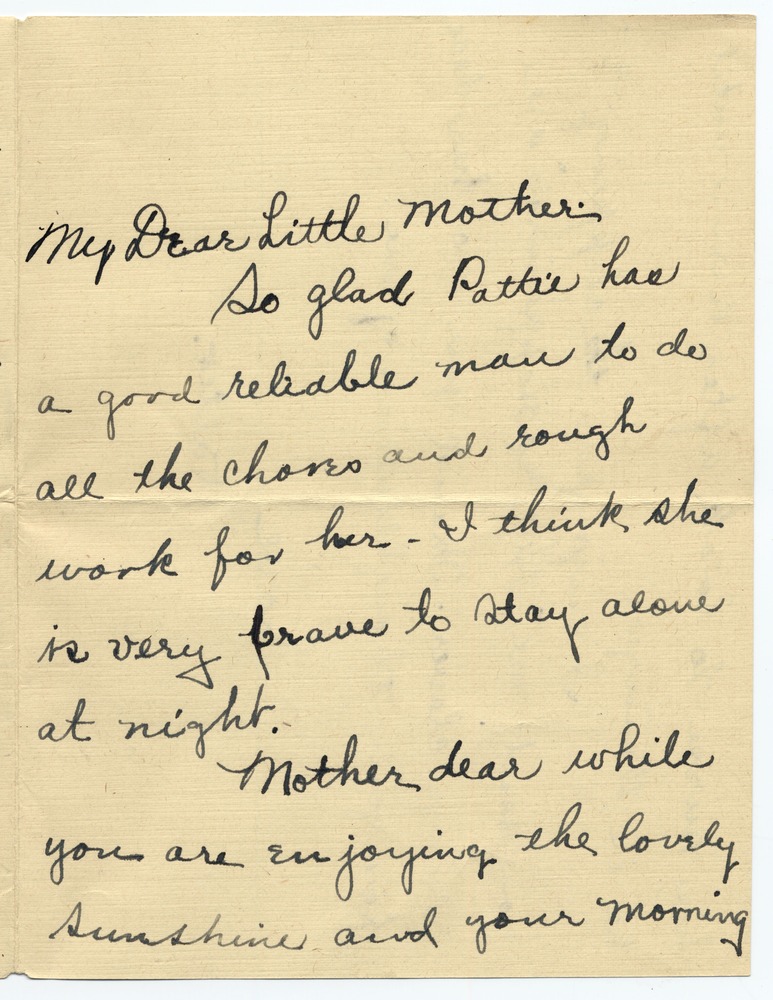 My Dear Little Mother.
So glad Pattie has
a good reliable man to do
all the chores and rough
work for her - I think she
is very brave to stay alone
at night.
Mother dear while
you are enjoying the lovely
sunshine and your morning